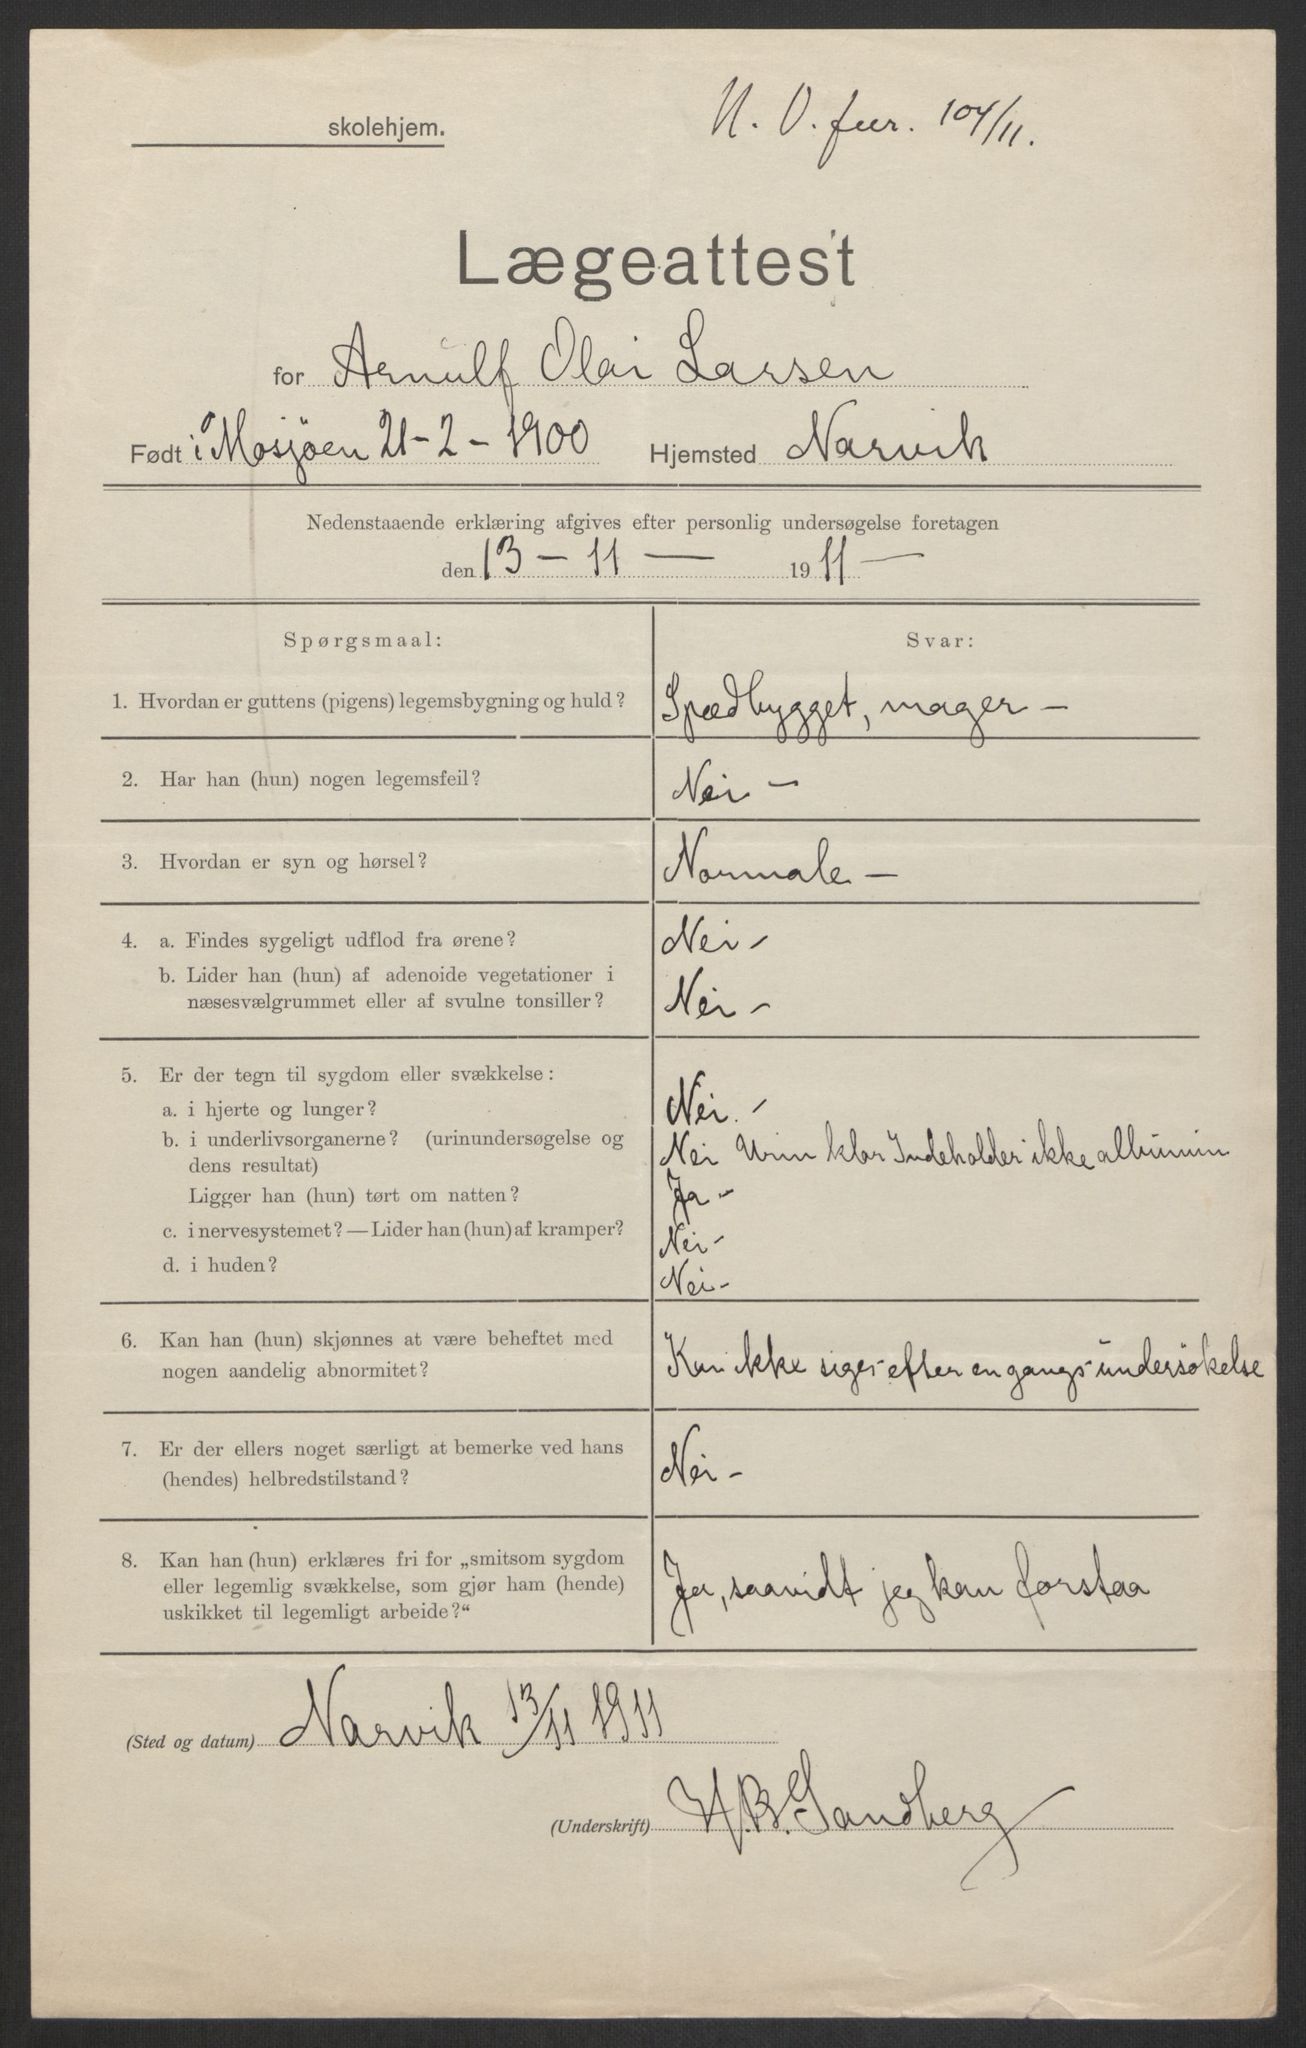 skolehjem.
N. O. fur. 104/11.
Lægeattest
for Arnulf Olai Larsen
Født i Mosjøen 21-2-1900 Hjemsted Narvik
Nedenstaaende erklæring afgives efter personlig undersøgelse foretagen
den 13 - 11 — 1911 —
Spørgsmaal: Svar:
1. Hvordan er guttens (pigens) legemsbygning og huld? Spædbygget, mager -
2. Har han (hun) nogen legemsfeil? Nei -
3. Hvordan er syn og hørsel? Normale -
4. a. Findes sygeligt udflod fra ørene? Nei -
b. Lider han (hun) af adenoide vegetationer i
næsesvælgrummet eller af svulne tonsiller? Nei -
5. Er der tegn til sygdom eller svækkelse:
a. i hjerte og lunger? Nei. -
b. i underlivsorganerne? (urinundersøgelse og Nei Urin klar Indeholder ikke albumin
dens resultat)
Ligger han (hun) tørt om natten? Ja -
c. i nervesystemet? — Lider han (hun) af kramper? Nei -
d. i huden? Nei -
6. Kan han (hun) skjønnes at være beheftet med
nogen aandelig abnormitet? Kan ikke siges efter en gangs undersøkelse
7. Er der ellers noget særligt at bemerke ved hans
(hendes) helbredstilstand? Nei -
8. Kan han (hun) erklæres fri for „smitsom sygdom
eller legemlig svækkelse, som gjør ham (hende) Ja, saavidt jeg kan forstaa
uskikket til legemligt arbeide?“
(Sted og datum) Narvik 13/11 1911
(Underskrift) H.B. Sandberg